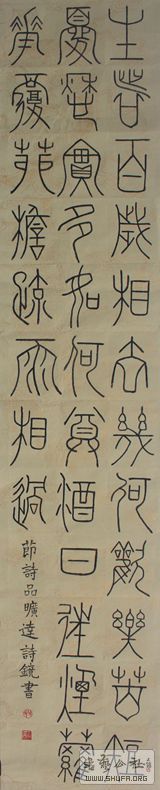 生者百歲相去幾何歡樂苦短
憂愁實多如何尊酒日往煙蘿
華覆茆檐疏雨相過
節詩品曠達詩鏡書
WWW.SHUFA.ORG